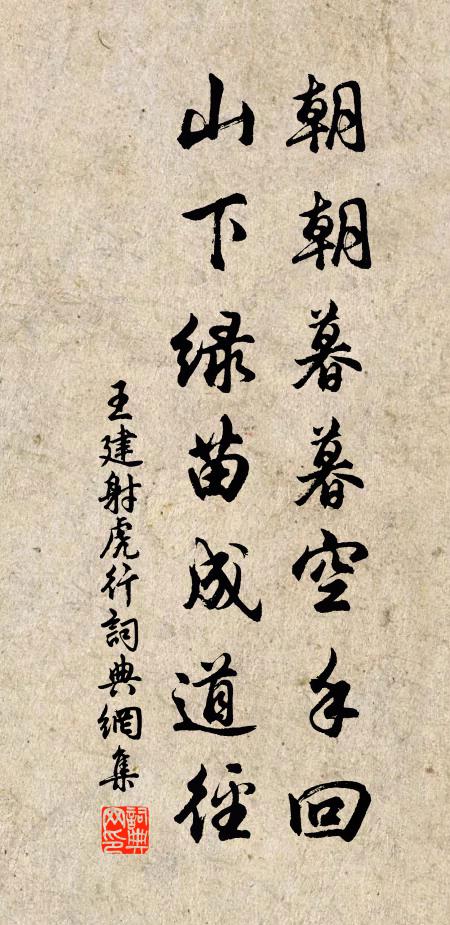 朝朝暮暮空手回
山下绿苗成道徑
王建射虎行詞典網集
詞典网印